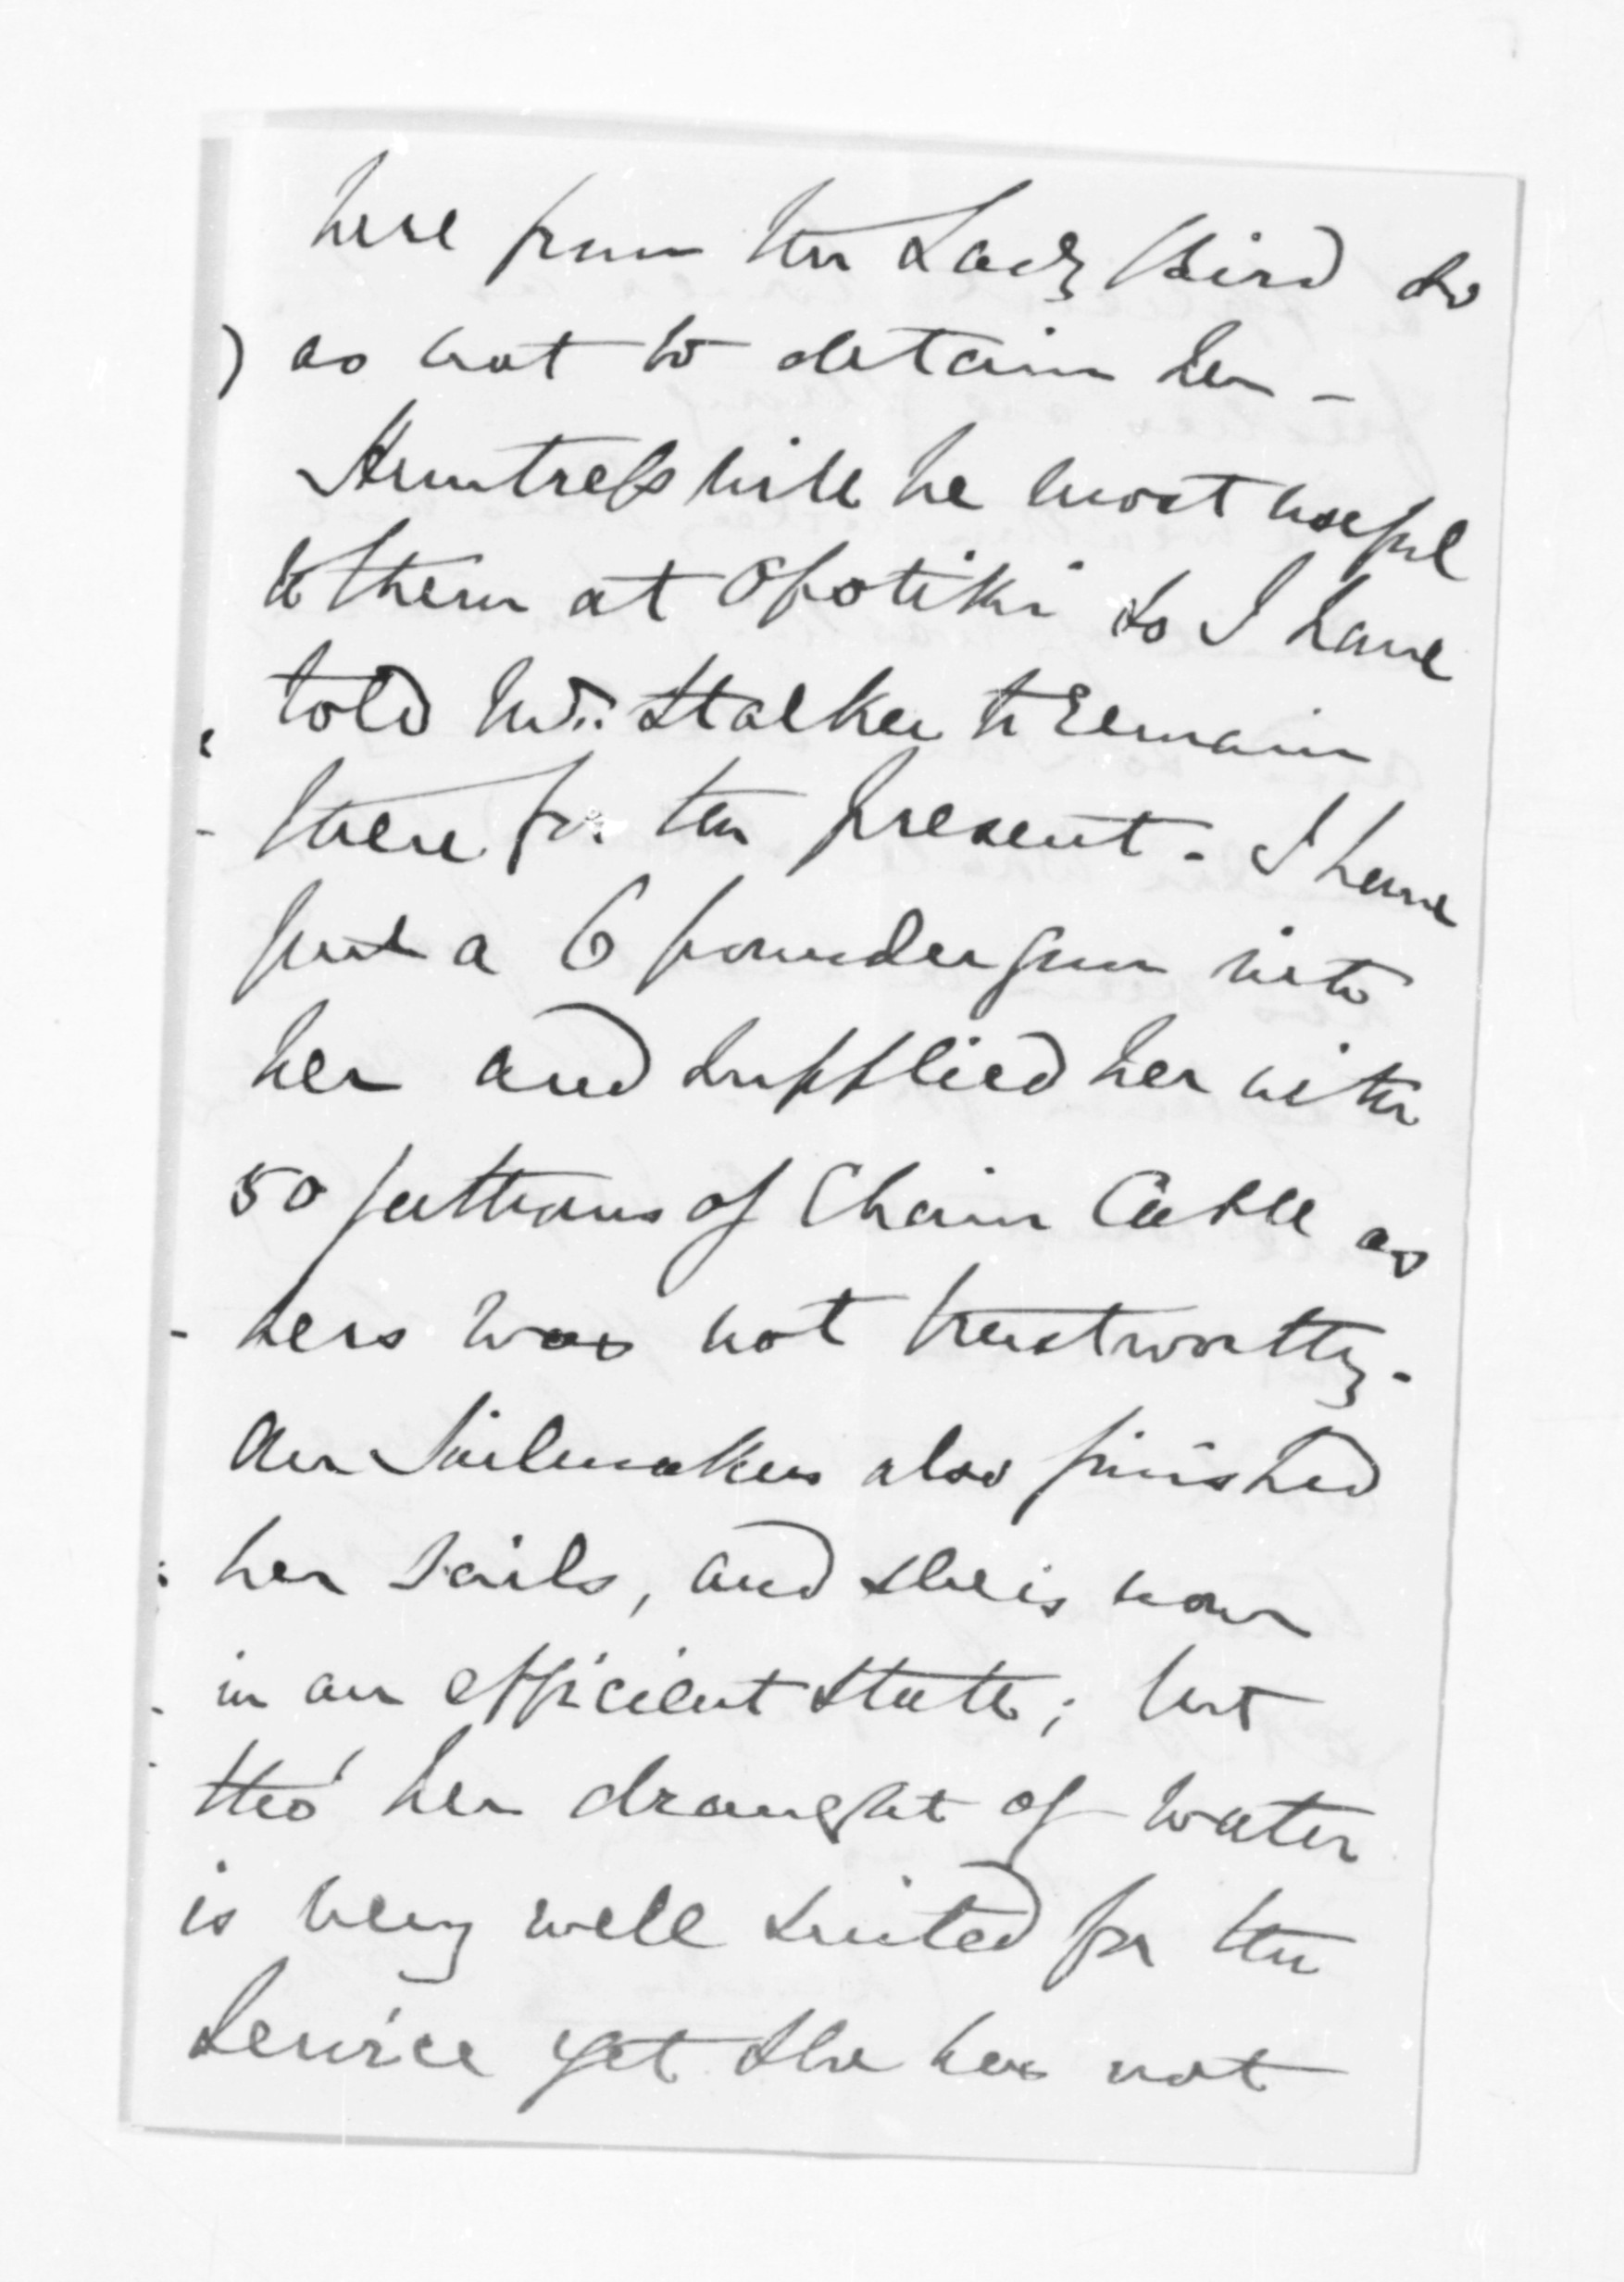 here from the Lady Bird so
as not to detain her -
Huntress will be most useful
to them at Opotiki so I have
told Mr. Stalker to remain
there for the present - I have
put a 6 pounder gun into
her and supplied her with
50 fathoms of Chain Cable as
hers was not trustworthy -
Our Sailmakers also finished
her Sails, and she is now
in an efficient state; but
tho' her draught of water
is very well suited for the
Service yet she has not